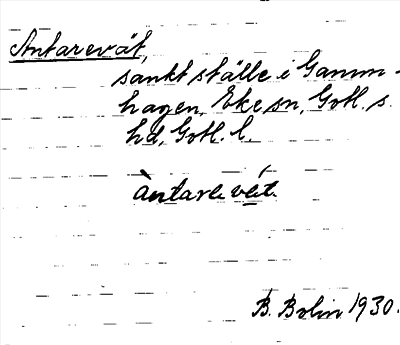 Antarevät,
sankt ställe i Gamm-
hagen, Eke sn, Gotl. s.
hd, Gotl. l.
àntare vét.
B. Bolin 1930.